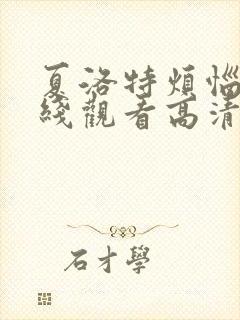 夏洛特煩惱
綫觀看高清
石才學